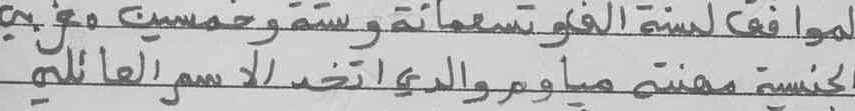 لموافق لسنة الف و تسعمائة و ستة و خمسين مغربي
الجنسية مهنته مياوم والذي اتخد الاسم العائلي